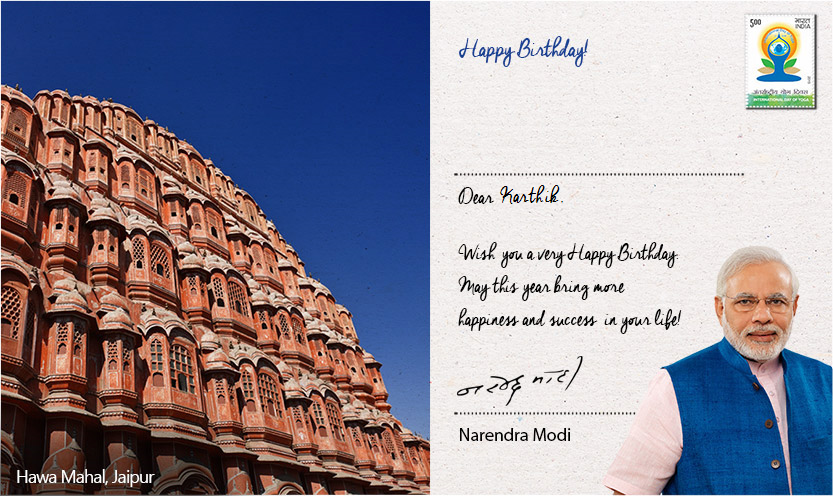 Happy Birthday!
5.00 भारत
INDIA
अंतर्राष्ट्रीय योग दिवस
INTERNATIONAL DAY OF YOGA
Dear Karthik,
Wish you a very Happy Birthday.
May this year bring more
happiness and success in your life!
नरेन्द्र मोदी
Narendra Modi
Hawa Mahal, Jaipur